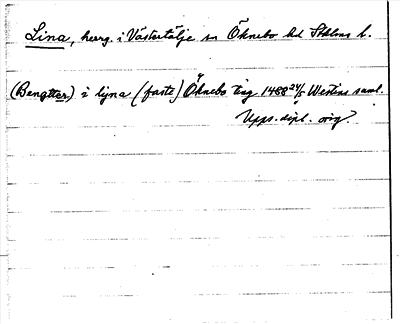 Lina, herrg. i Västertälje sn Öknebo hd Sthlms l.
(Bengtter) i lyna (faste) Öknebo ting 1488 24/5 Westins saml.
Upps. dipl. orig.